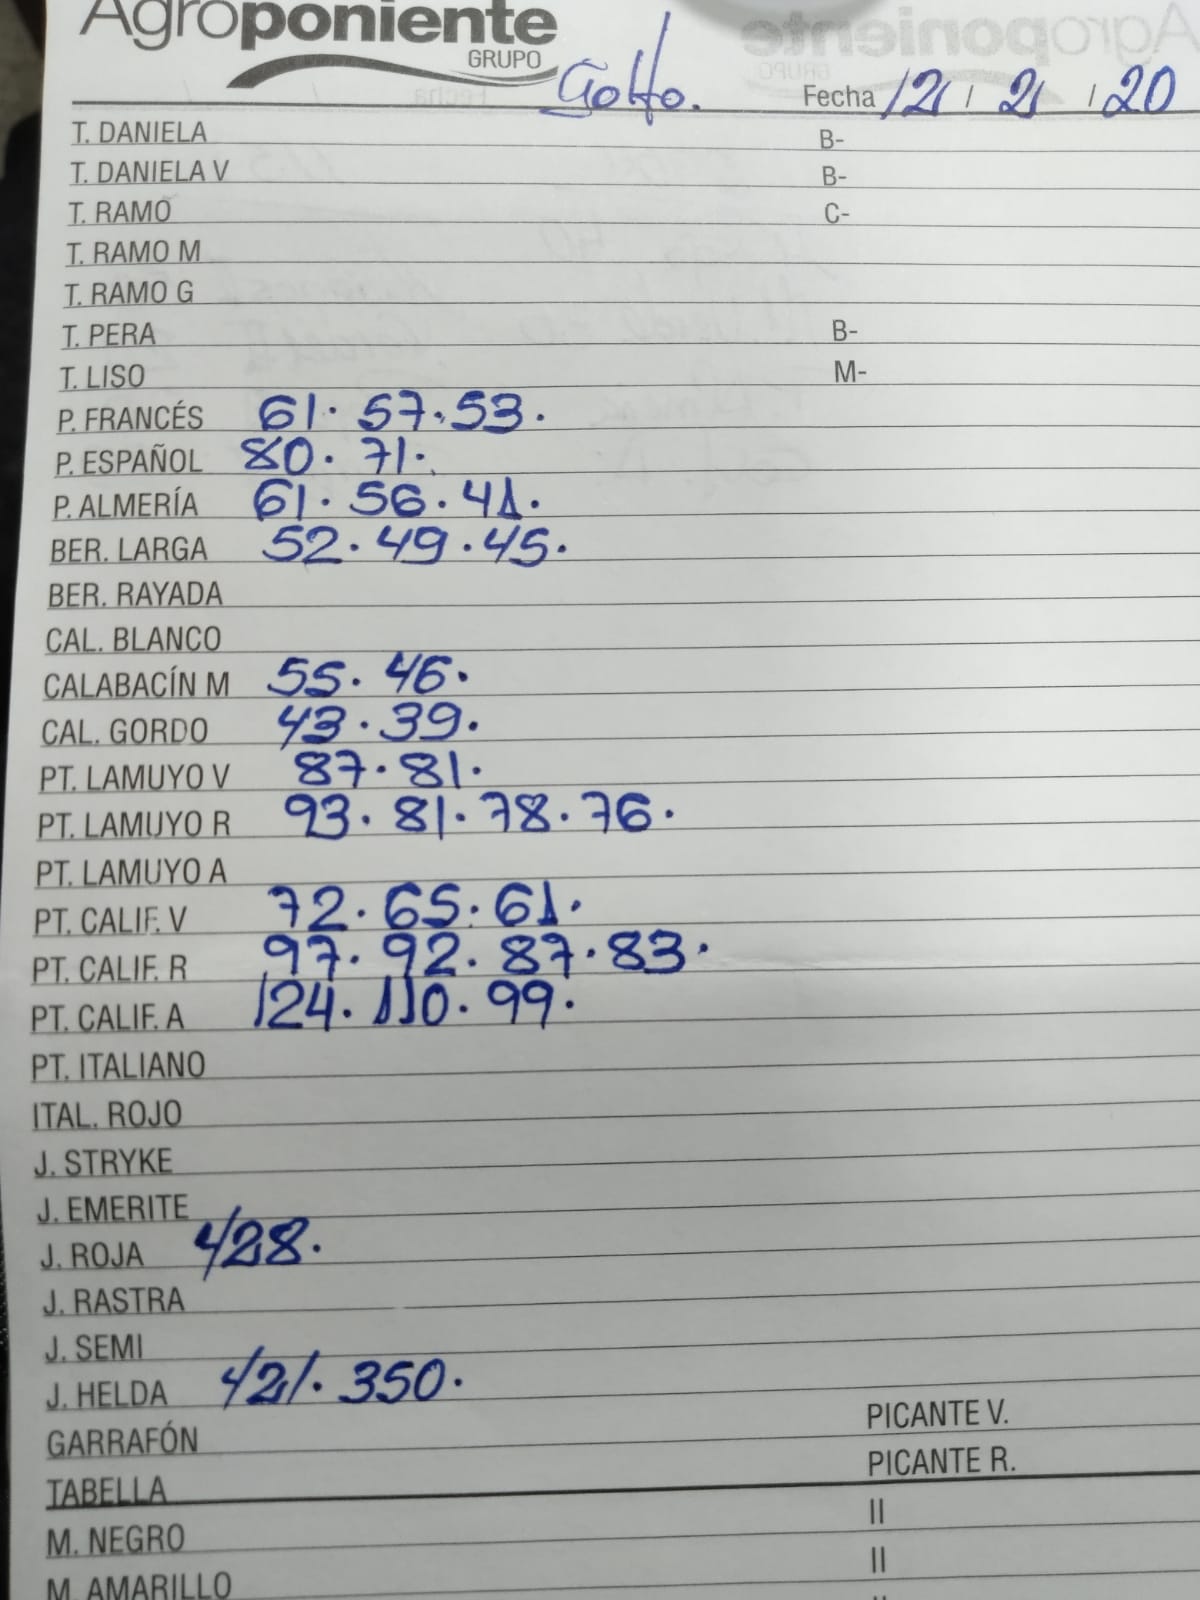 Agroponiente
GRUPO
Golfo. Fecha 12 / 2 / 20
T. DANIELA B-
T. DANIELA V B-
T. RAMO C-
T. RAMO M
T. RAMO G
T. PERA B-
T. LISO M-
P. FRANCÉS 61. 57. 53.
P. ESPAÑOL 80. 71.
P. ALMERÍA 61. 56. 41.
BER. LARGA 52. 49. 45.
BER. RAYADA
CAL. BLANCO
CALABACÍN M 55. 46.
CAL. GORDO 43. 39.
PT. LAMUYO V 87. 81.
PT. LAMUYO R 93. 81. 78. 76.
PT. LAMUYO A
PT. CALIF. V 72. 65. 61.
PT. CALIF. R 97. 92. 87. 83.
PT. CALIF. A 124. 110. 99.
PT. ITALIANO
ITAL. ROJO
J. STRYKE
J. EMERITE
J. ROJA 428.
J. RASTRA
J. SEMI
J. HELDA 421. 350.
GARRAFÓN PICANTE V.
TABELLA PICANTE R.
M. NEGRO II
M. AMARILLO II